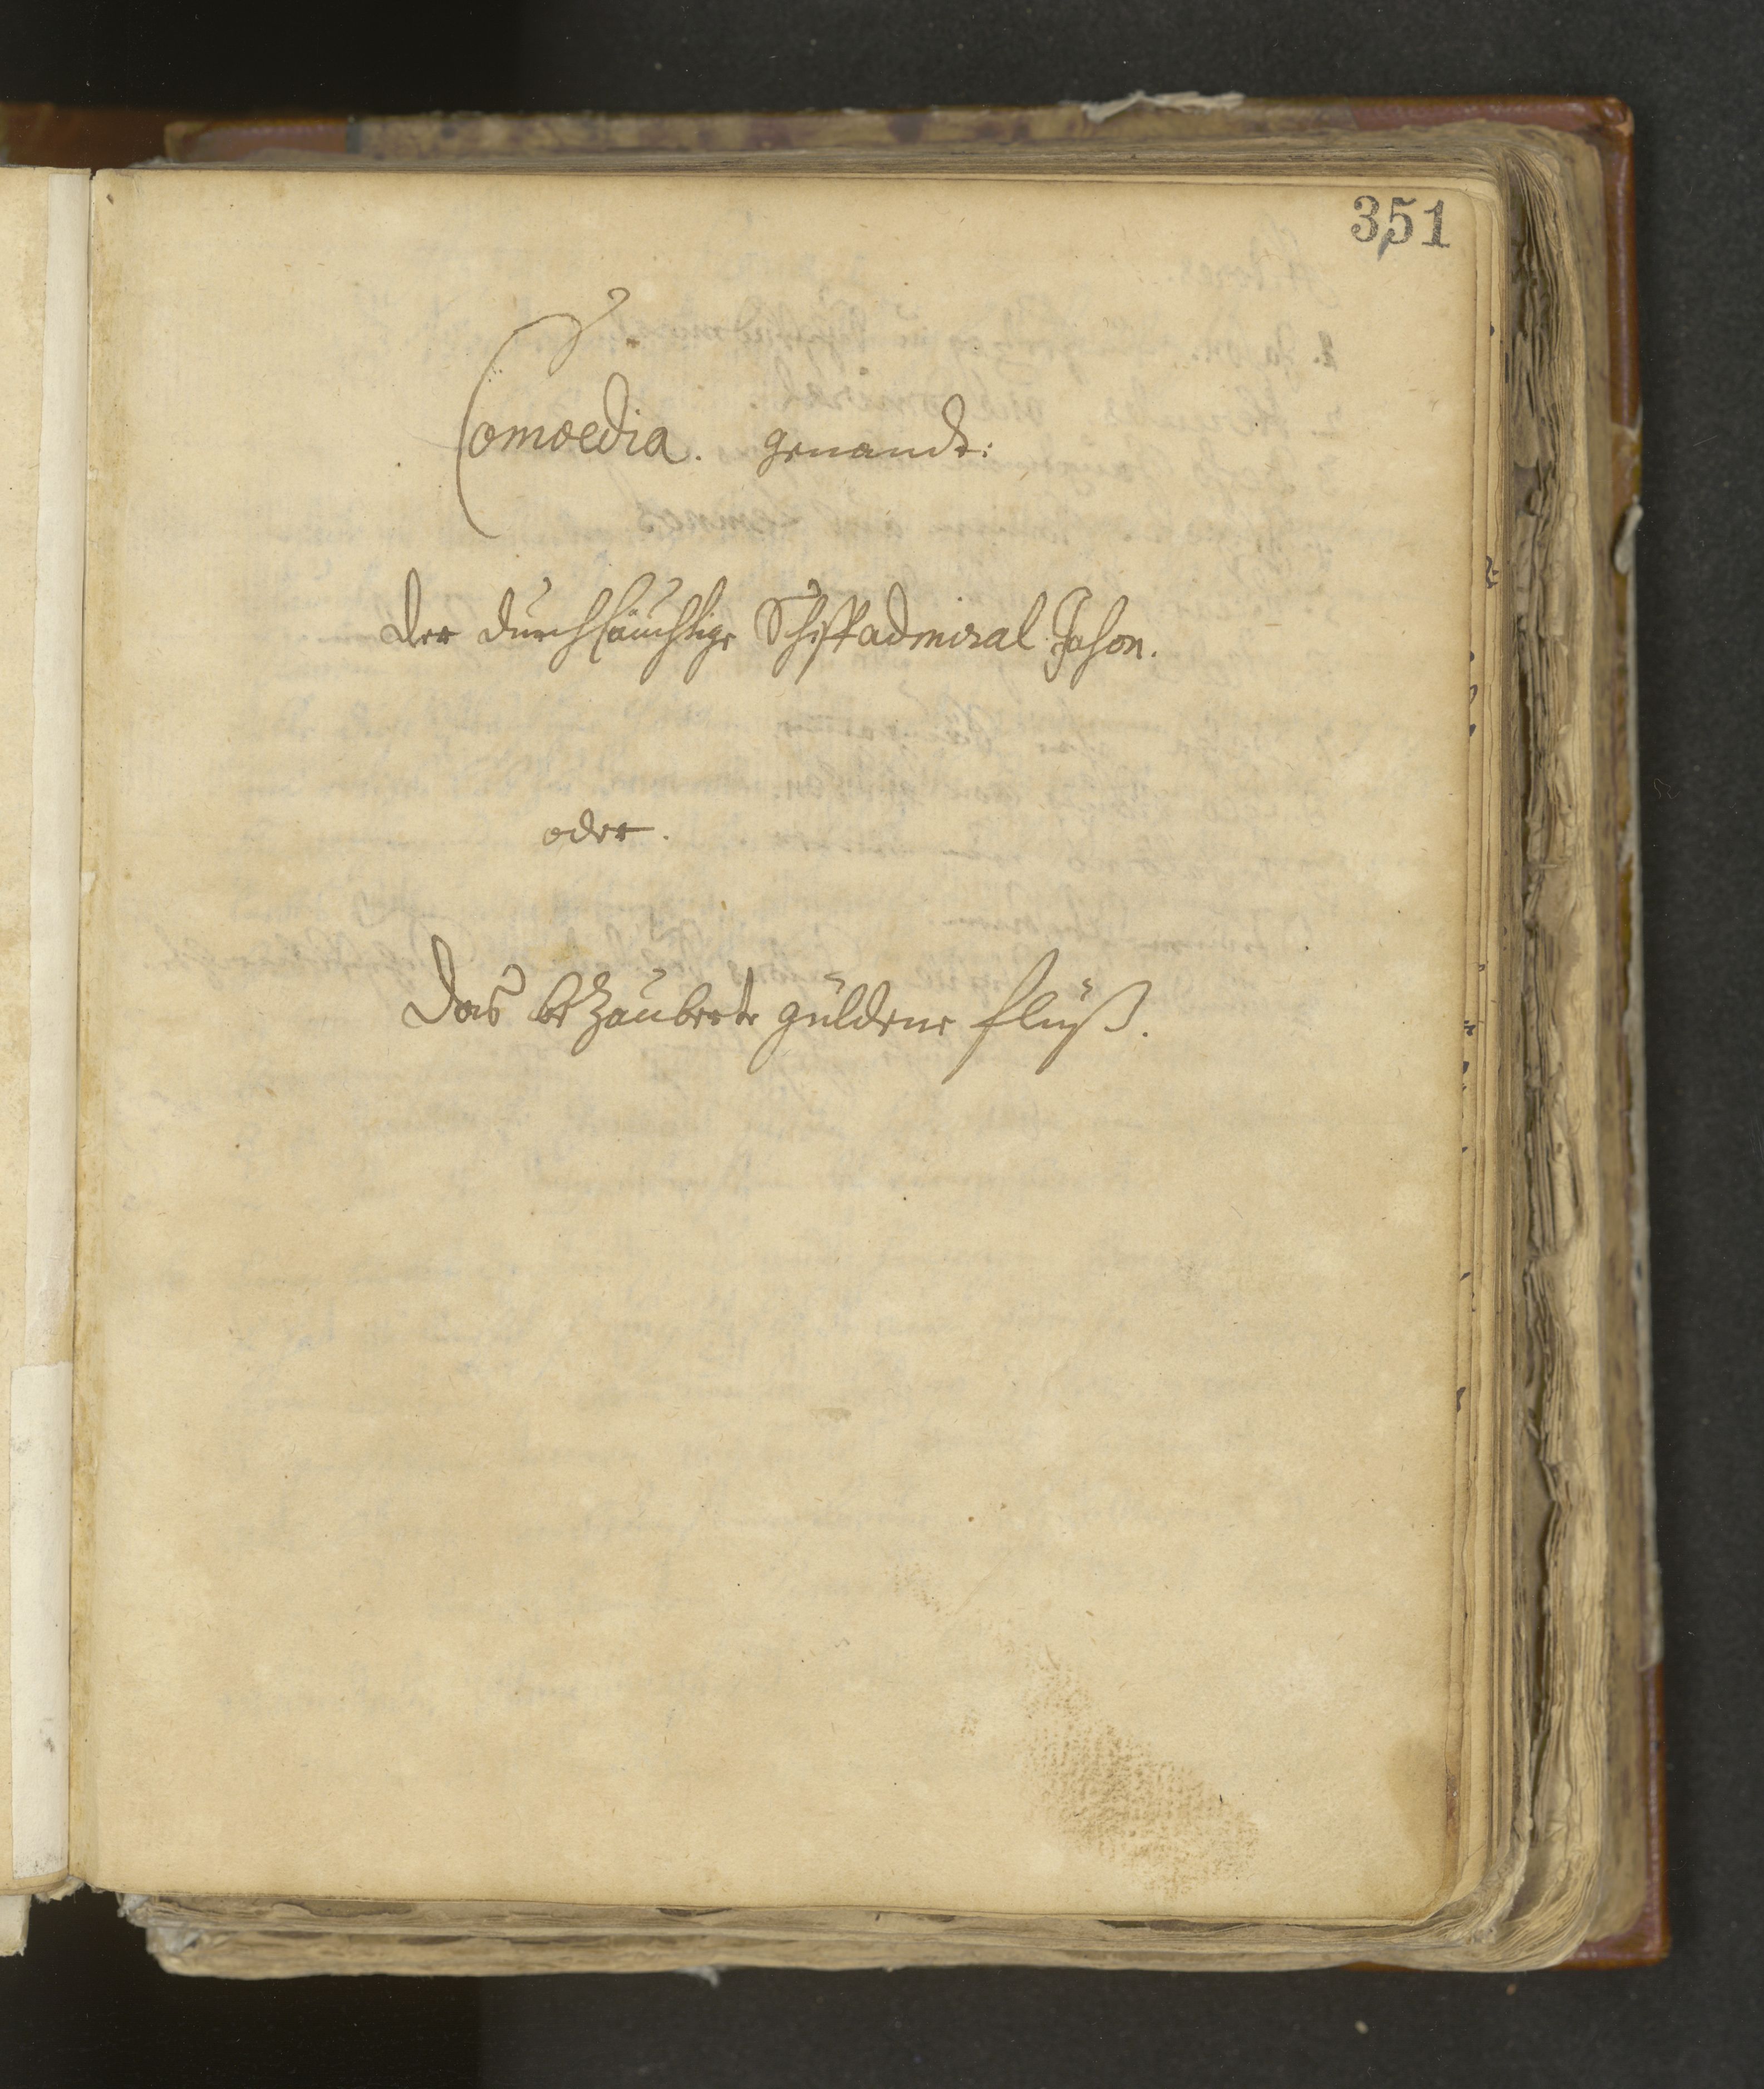 351
Comoedia. genandt:
Der durchläuchtige Schiffadmiral Jason.
oder.
Das bezauberte güldene flüß.